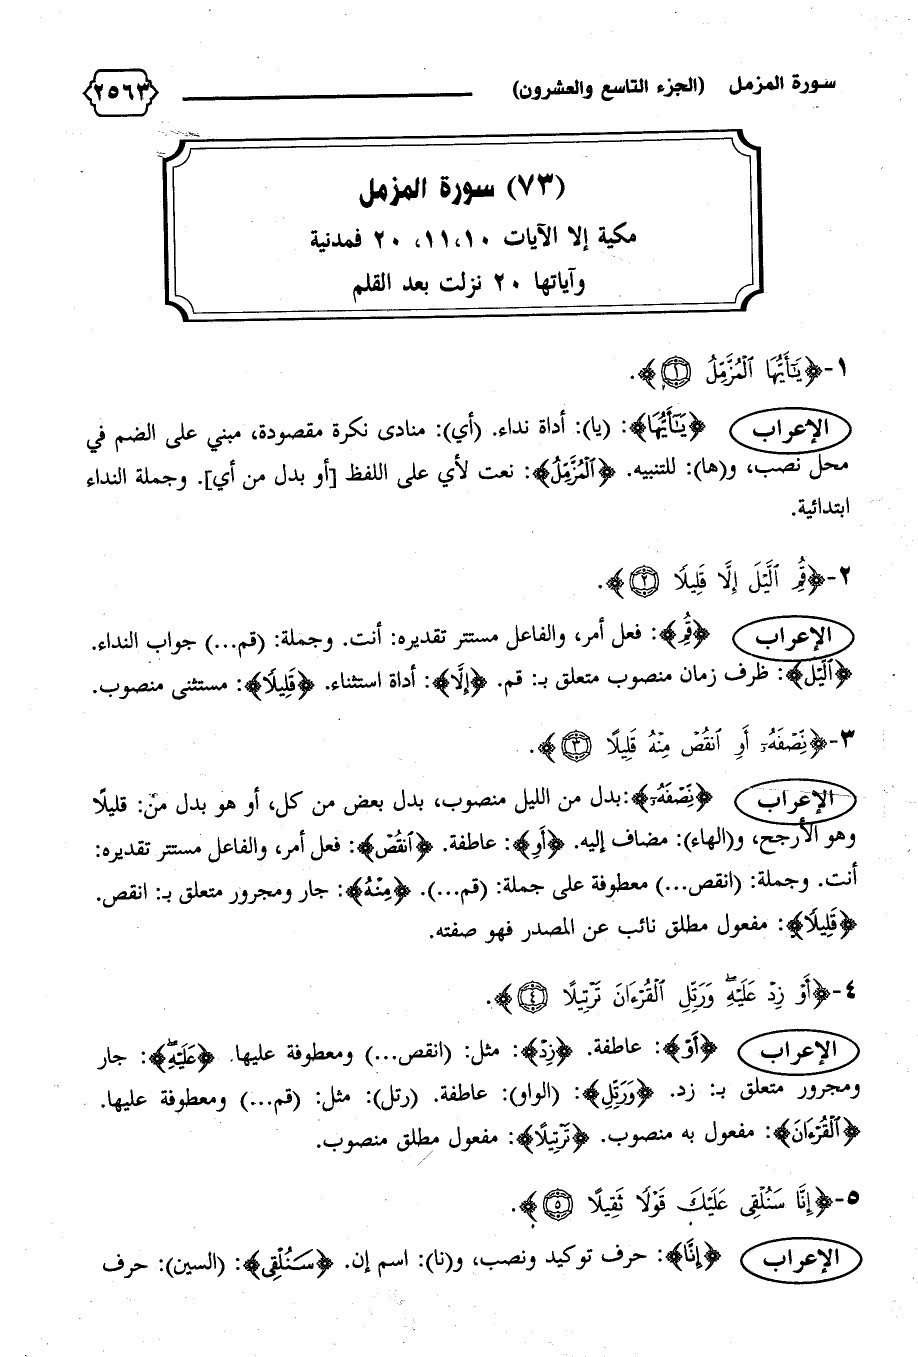 سورة المزمل (الجزء التاسع والعشرون) ٢٥٦٣
(٧٣) سورة المزمل
مكية إلا الآيات ١٠،١١، ٢٠ فمدنية
وآياتها ٢٠ نزلت بعد القلم
١-﴿يَٰٓأَيُّهَا ٱلْمُزَّمِّلُ ١﴾.
الإعراب ﴿يَٰٓأَيُّهَا﴾: (يا): أداة نداء. (أي): منادى نكرة مقصودة، مبني على الضم في
محل نصب، و(ها): للتنبيه. ﴿ٱلْمُزَّمِّلُ﴾: نعت لأي على اللفظ [أو بدل من أي]. وجملة النداء
ابتدائية.
٢-﴿قُمِ ٱلَّيْلَ إِلَّا قَلِيلًا ٢﴾.
الإعراب ﴿قُمِ﴾: فعل أمر، والفاعل مستتر تقديره: أنت. وجملة: (قم...) جواب النداء.
﴿ٱلَّيْلَ﴾: ظرف زمان منصوب متعلق بـ: قم. ﴿إِلَّا﴾: أداة استثناء. ﴿قَلِيلًا﴾: مستثنى منصوب.
٣-﴿نِّصْفَهُۥٓ أَوِ ٱنقُصْ مِنْهُ قَلِيلًا ٣﴾.
الإعراب ﴿نِّصْفَهُۥٓ﴾:بدل من الليل منصوب، بدل بعض من كل، أو هو بدل من: قليلًا
وهو الأرجح، و(الهاء): مضاف إليه. ﴿أَوِ﴾: عاطفة. ﴿ٱنقُصْ﴾: فعل أمر، والفاعل مستتر تقديره:
أنت. وجملة: (انقص...) معطوفة على جملة: (قم...). ﴿مِنْهُ﴾: جار ومجرور متعلق بـ: انقص.
﴿قَلِيلًا﴾: مفعول مطلق نائب عن المصدر فهو صفته.
٤-﴿أَوْ زِدْ عَلَيْهِ ۖ وَرَتِّلِ ٱلْقُرْءَانَ تَرْتِيلًا ٤﴾.
الإعراب ﴿أَوْ﴾: عاطفة. ﴿زِدْ﴾: مثل: (انقص...) ومعطوفة عليها. ﴿عَلَيْهِ ۖ﴾: جار
ومجرور متعلق بـ: زد. ﴿وَرَتِّلِ﴾: (الواو): عاطفة. (رتل): مثل: (قم...) ومعطوفة عليها.
﴿ٱلْقُرْءَانَ﴾: مفعول به منصوب. ﴿تَرْتِيلًا﴾: مفعول مطلق منصوب.
٥-﴿إِنَّا سَنُلْقِى عَلَيْكَ قَوْلًا ثَقِيلًا ٥﴾.
الإعراب ﴿إِنَّا﴾: حرف توكيد ونصب، و(نا): اسم إن. ﴿سَنُلْقِى﴾: (السين): حرف